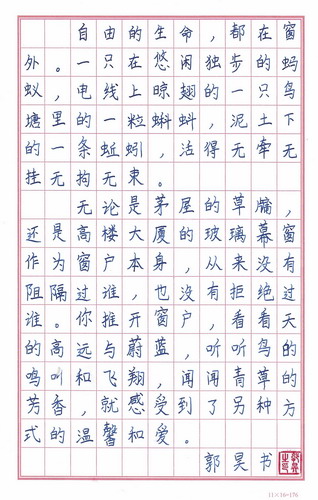 自由的生命，都在窗
外。一只在悠闲独步的蚂
蚁，电线上晾翅的一只鸟
塘里的一粒蝌蚪，泥土下
的一条蚯蚓，活得无牵无
挂无拘无束。
无论是茅屋的草牖，
还是高楼大厦的玻璃幕窗
作为窗户本身，从来没有
阻隔过谁，也没有拒绝过
谁。你推开窗户，看看天
的高远与蔚蓝，听听鸟的
鸣叫和飞翔，闻闻青草的
芳香，就感受到了另种方
式的温馨和爱。
郭昊书
11×16=176